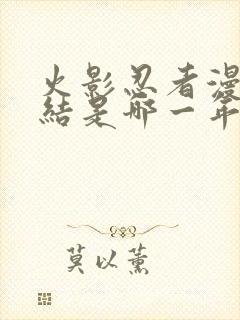 火影忍者漫
結是哪一年
莫以薰